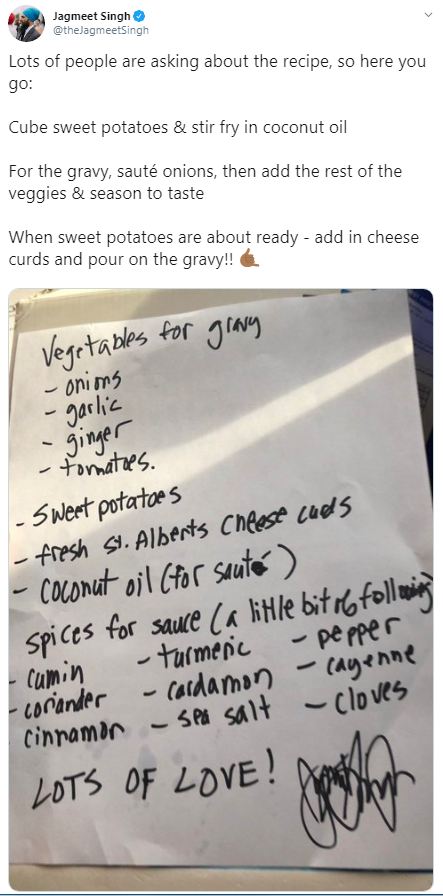 Jagmeet Singh
@theJagmeetSingh
Lots of people are asking about the recipe, so here you
go:
Cube sweet potatoes & stir fry in coconut oil
For the gravy, sauté onions, then add the rest of the
veggies & season to taste
When sweet potatoes are about ready - add in cheese
curds and pour on the gravy!! 🤙🏾
Vegetables for gravy
- onions
- garlic
- ginger
- tomatoes.
- Sweet potatoes
- fresh St. Alberts cheese cuds
- coconut oil (for sauté)
spices for sauce (a little bit of following
- cumin - turmeric - pepper
- coriander - cardamon - cayenne
cinnamon - sea salt - cloves
LOTS OF LOVE!